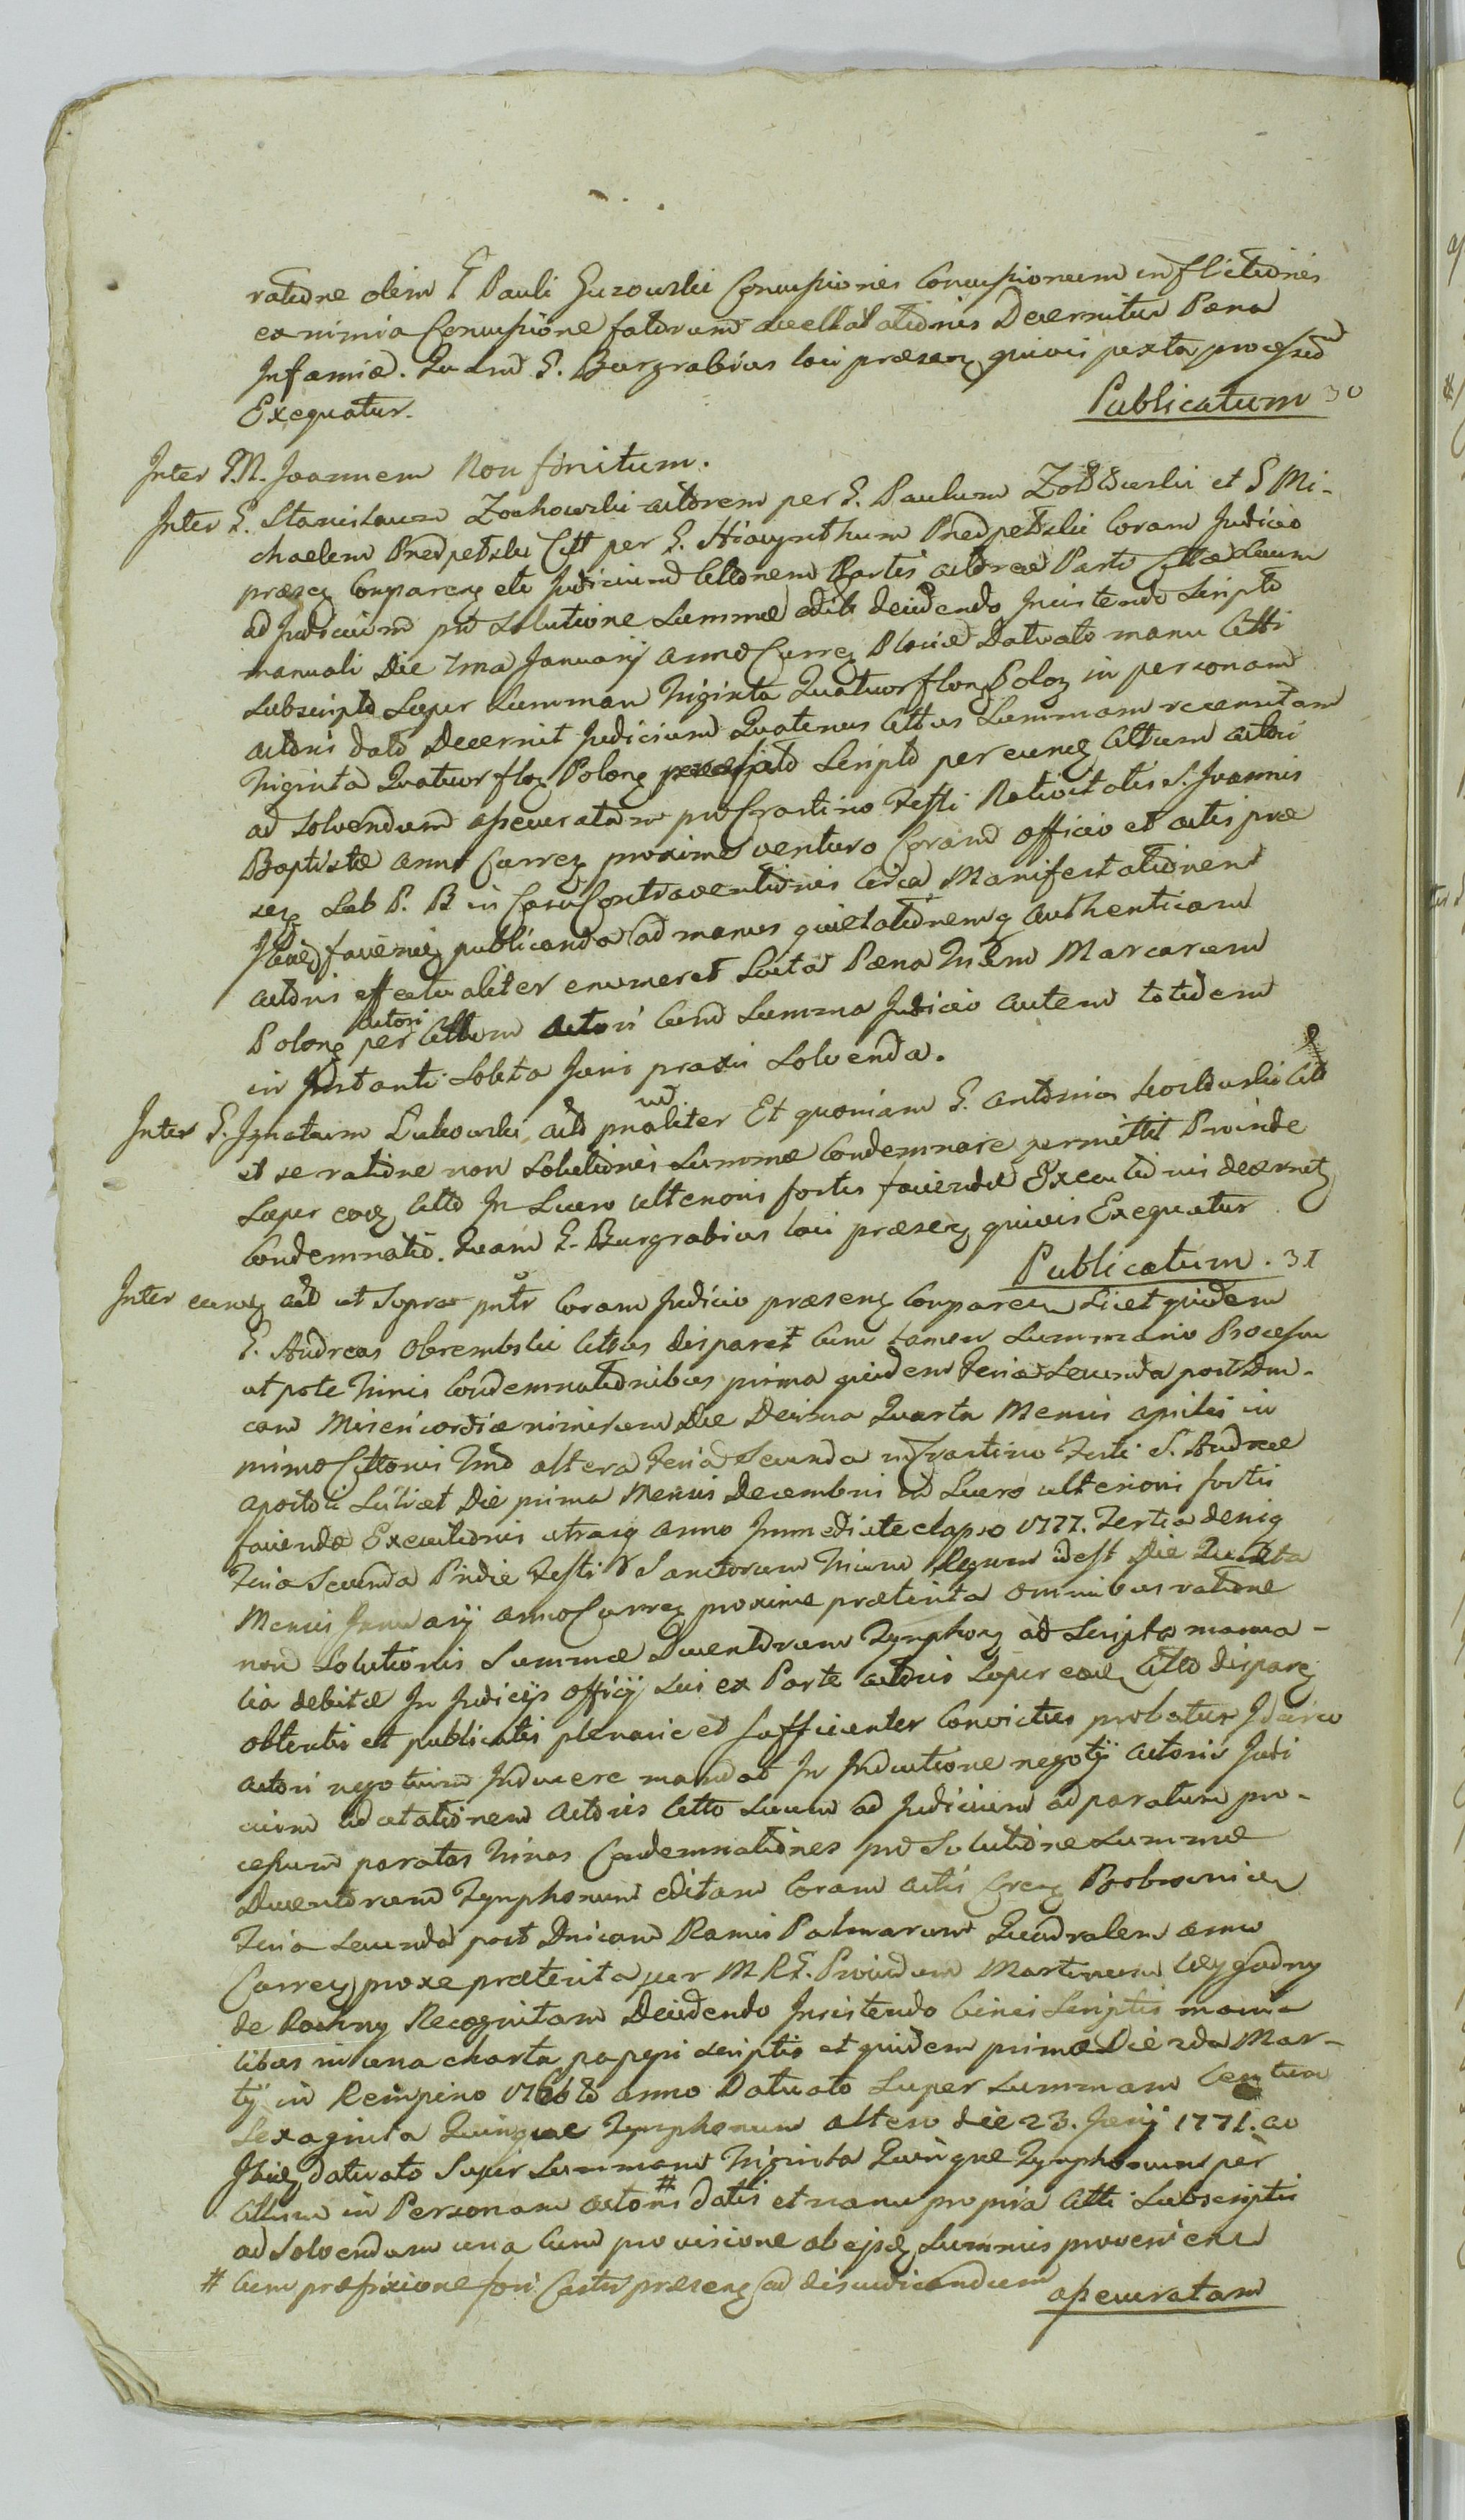 ratione olim G Pauli Guzowski Concussionis Concussionum inflictionis
ex nimia Concussione fatorum Decernitur Pæna
Infamiæ. Quam G. Burgrabius loci præsen quivis juxta processum
Exequatur. Publicatum 30
Inter G.M. Joannem Non finitum.
Inter G. Stanislaum Zochowski actorem per G. Paulum et G Mi-
chaelem Przedpełski Citt per G. Hiacynthum Przedpełski Coram Judicio
præsen Comparen etc Judicium Citt̄onem Partis actoreæ Parti Cittæ Suum
ad Judicium pro Solutione Summæ edit deciden̄do Insistendo Scripto
manuali Die 1ma Januarij anno Curren Plociæ Datuato manu Citti
Subscripto Super Summam Triginta Quatuor flon Polon in personam
actoris dato Decernit Judicium Quatenus Cittus Summam recensitam
Triginta Quatuor flon Polon Scripto per eunq Cittum actori
ad Solvendum assecuratam pro Crastino Festi Nativitatis S. Joannis
Baptistæ anno Curren proxime venturo Coram officio et actis præ
sen Sub P. B in Casu Contraventionis Circa Manifestationem
Ibidem facienda publicanda ad manus quietationemq authenticam
actoris effectualiter enumeret Lucta Pæna Trium Marcarum
Polon per Cittum actori Cum Summa Judicio autem totidem
in Instanti Solita Juris praxi Solvenda.
Inter G. Ignatium Lukowski act pnaliter Et quoniam G. Antonius Citt
et se ratione non Solutionis Summæ Condemnare permittit Proinde
Super eoq Citto In Lucro ulterioris fortis faciendæ Executionis decernit
Condemnatio. Quam G. Burgrabius loci præsen quivis Exequatur
Publicatum. 31
Inter eunq act ut Supra pntr Coram Judicio præsen Comparen Licet quidem
G. Andreas Obrembski Cittus disparet Cum tamen Summario Processu
ut pote Trinis Condemnationibus prima quidem Feria Secunda post Dm-
cam Misericordiæ nimirum Die Decima Quarta Mensis aprilis in
primo Cittonis Tmo altera Feria Secunda in Crastino Festi S. Andreæ
apostoli Scilicet Die prima Mensis Decembris in Lucro ulterioris fortis
faciendæ Executionis utraq anno Immediate elapso 1777. Tertia deniq
Feria Secunda Pridie Festi Sanctorum Trium Regum idest Die Quinta
Mensis Januarij anno Curren proxime præterita omnibus ratione
non Solutionis Summæ Ducentorum Tynphon ad Scripta manua-
lia debitæ In Judicijs officij Sui ex Parte actoris Super eoq Citto disparen
obtentis et publicatis plenarie et Sufficienter Convictus probatur Idcirco
actori negotium Inducere mandat In Inductione negotij actoris Judi
cium ad citationem actoris Citto Suum ad Judicium ad paratum pro-
cessum paratas trinas Condemnationes pro Solutione Summæ
Ducentorum Tynphonum editam Coram actis Cren Bobrownicen
Feria Secunda post Dnicam Ramis Palmarum Quadralem anno
Curren proxe præterita per MRG. Providum Martinum Wygodny
de Rochny Recognitam Decidendo Insistendo binis Scriptis manua
libus in una charta papyri scriptis et quidem primo Die 2da Mar-
tij in Rempino anno Datuato Super Summam Centum
Sexaginta Quinque Tynphonum altero die 23. Junij 1771. ao
Ibiq datuato Super Summam Triginta Quinque Tynphonum per
Cittum in Personam actoris # datis et manu propria Citti Subscriptis
ad Solvendum una Cum provisione ab ejsdq Summis provenien
# Cum præfixione fori Castri præsen ad disjudicandum assecuratam